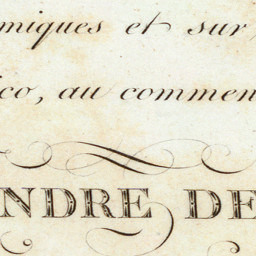 miques et sur
co, au commen
NDRE DE